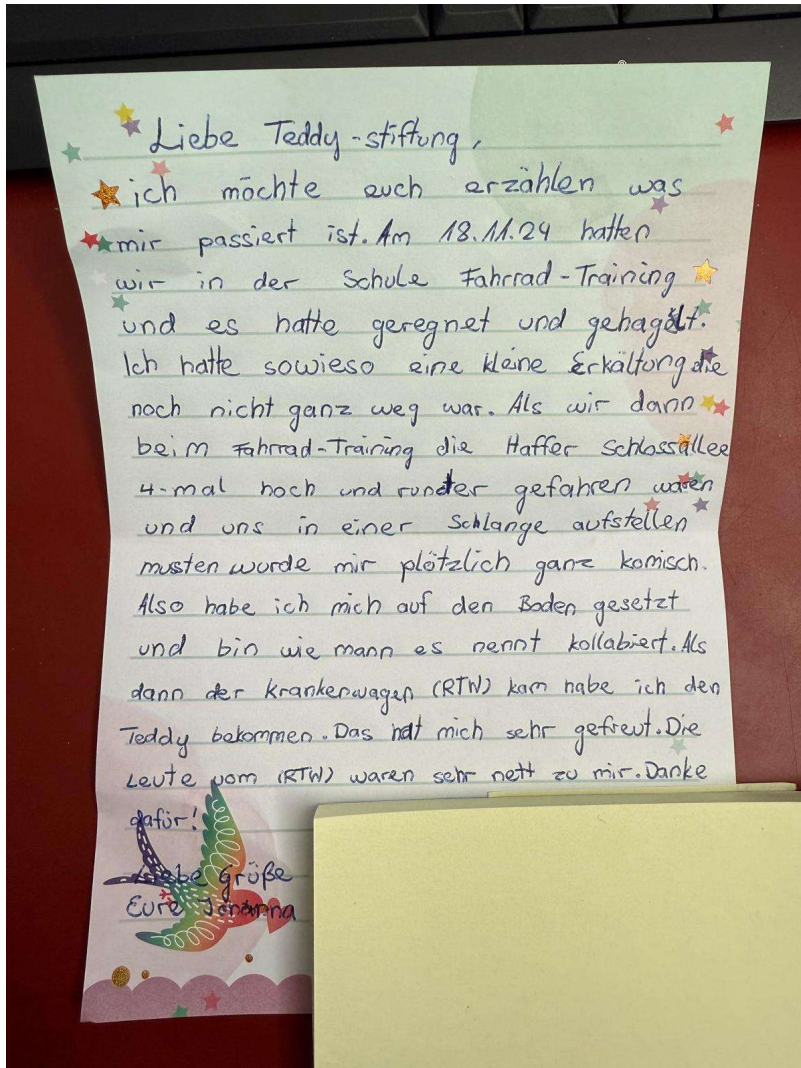 Liebe Teddy-stiftung,
ich möchte euch erzählen was
mir passiert ist. Am 18.11.24 hatten
wir in der Schule Fahrrad-Training
und es hatte geregnet und gehagelt.
Ich hatte sowieso eine kleine Erkältung die
noch nicht ganz weg war. Als wir dann
beim Fahrrad-Training die Haffer Schlossallee
4-mal hoch und runder gefahren waren
und uns in einer Schlange aufstellen
musten wurde mir plötzlich ganz komisch.
Also habe ich mich auf den Boden gesetzt
und bin wie mann es nennt kollabiert. Als
dann der Krankenwagen (RTW) kam habe ich den
Teddy bekommen. Das hat mich sehr gefreut. Die
Leute vom (RTW) waren sehr nett zu mir. Danke
dafür!
Liebe Grüße
Eure Johanna